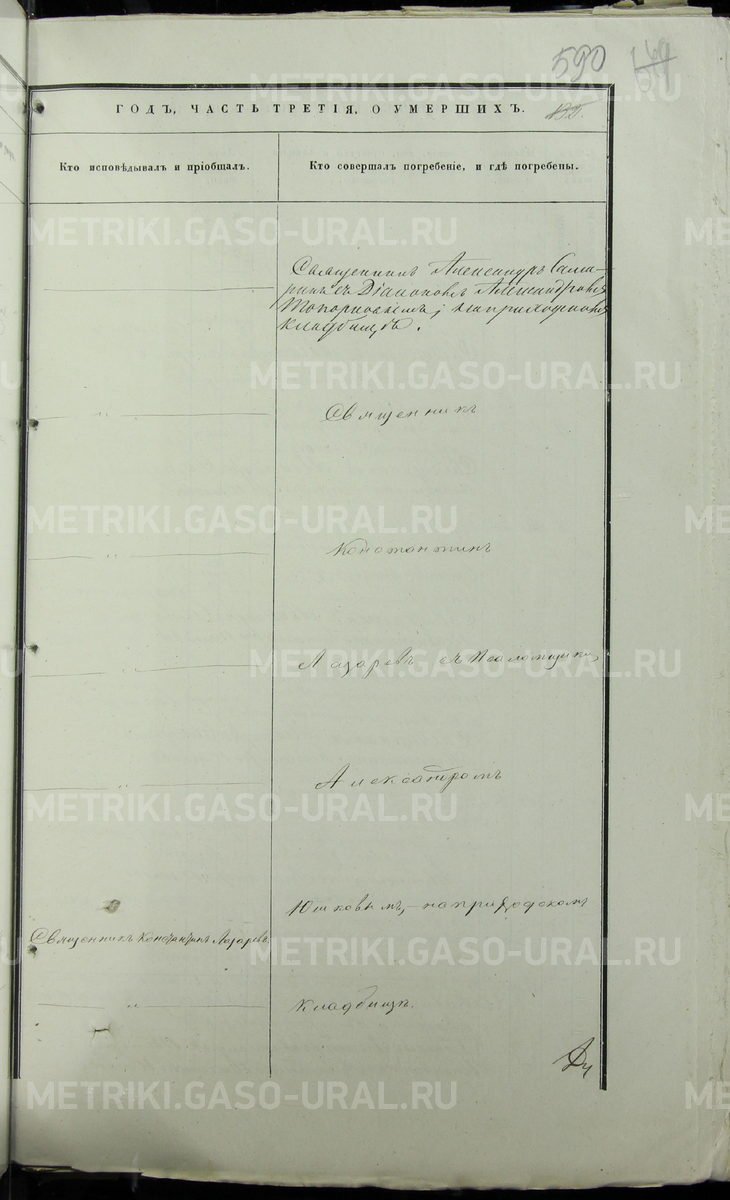 590
ГОДЪ, ЧАСТЬ ТРЕТІЯ, О УМЕРШИХЪ.
Кто исповѣдывалъ и пріобщалъ.
Кто совершалъ погребеніе, и гдѣ погребены.
METRIKI.GASO-URAL.RU
Священникъ Александръ Сама-
ринъ съ Діакономъ Александромъ
Топорковымъ; на приходскомъ
кладбищѣ.
Священникъ
Константинъ
Лазаревъ съ Псаломщикомъ
Александромъ
Юшковымъ,- на приходскомъ
Священникъ Константинъ Лазаревъ.
кладбищѣ.